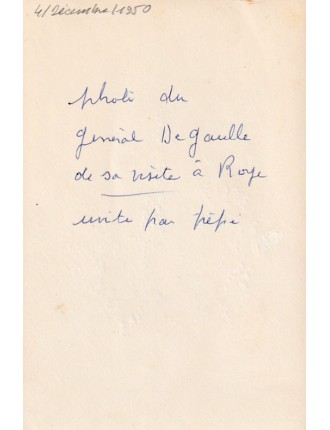 4/Décembre/1950
photo du
général De Gaulle
de sa visite à Roye
invite par pépé